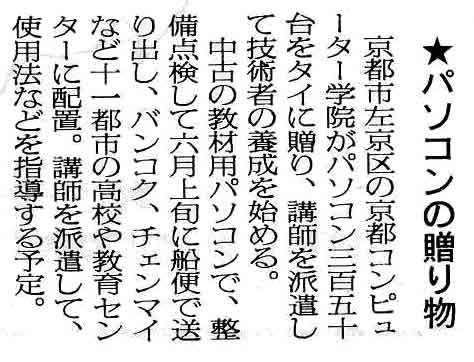 ★パソコンの贈り物
京都市左京区の京都コンピュ
ーター学院がパソコン三百五十
台をタイに贈り、講師を派遣し
て技術者の養成を始める。
中古の教材用パソコンで、整
備点検して六月上旬に船便で送
り出し、バンコク、チェンマイ
など十一都市の高校や教育セン
ターに配置。講師を派遣して、
使用法などを指導する予定。